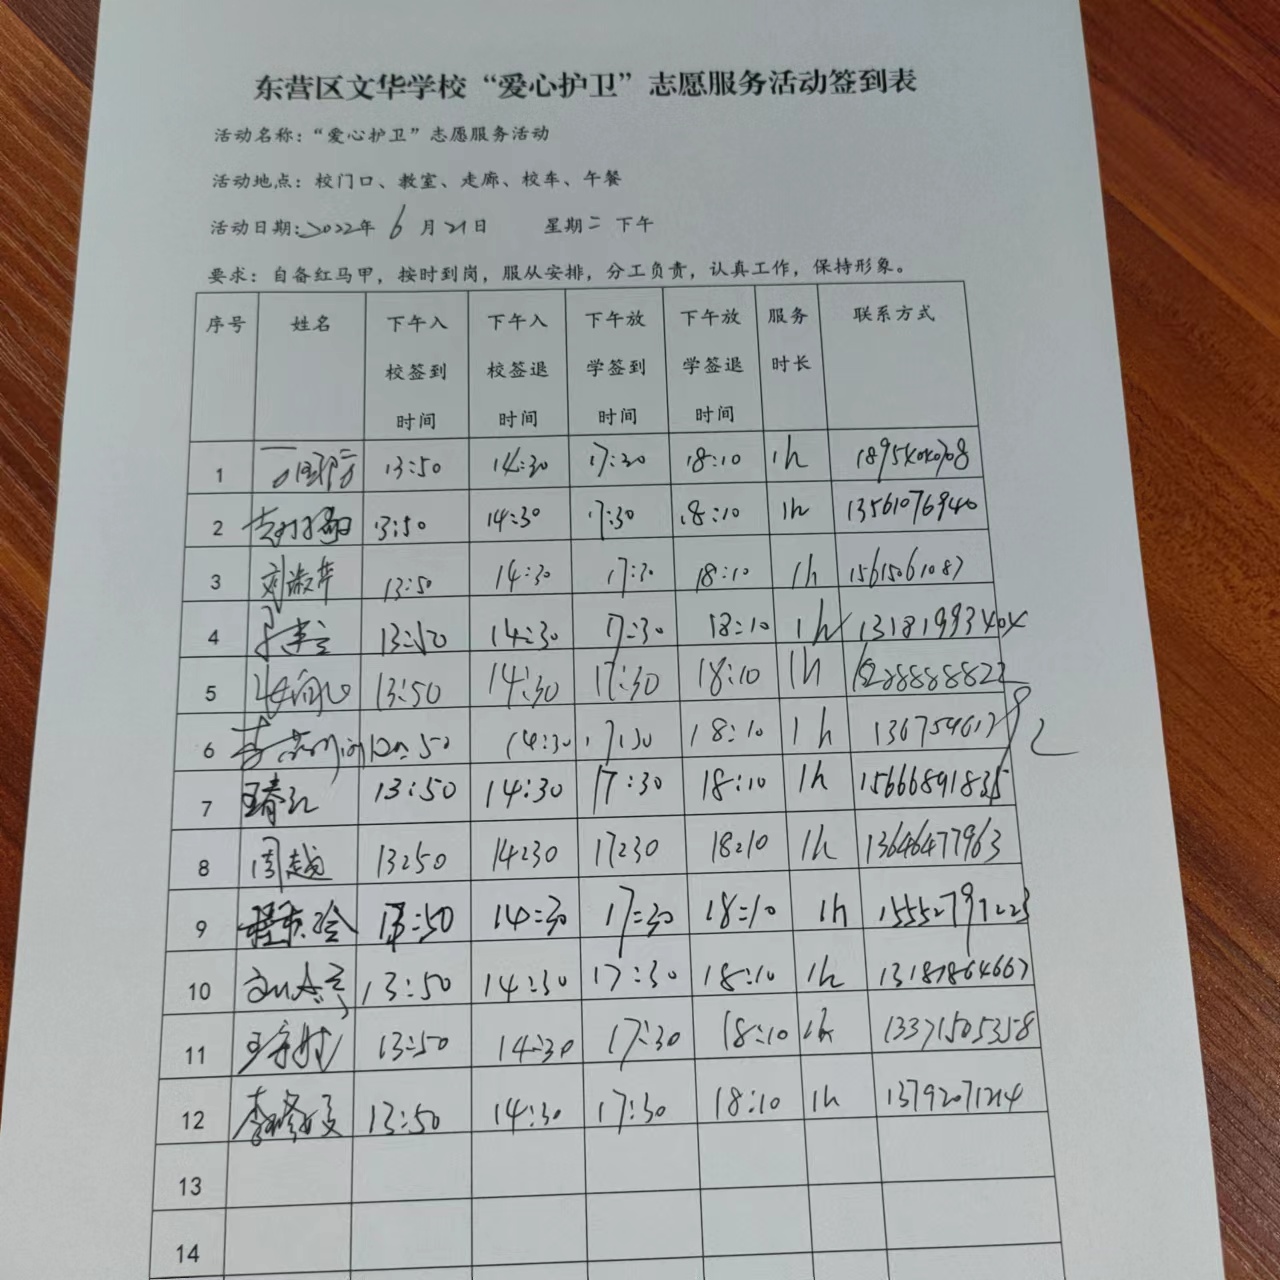 东营区文华学校“爱心护卫”志愿服务活动签到表
活动名称：“爱心护卫”志愿服务活动
活动地点：校门口、教室、走廊、校车、午餐
活动日期:2022年 6 月 21日 星期二 下午
要求：自备红马甲，按时到岗，服从安排，分工负责，认真工作，保持形象。
序号 姓名 下午入校签到时间 下午入校签退时间 下午放学签到时间 下午放学签退时间 服务时长 联系方式
1 13:50 14:30 17:30 18:10 1h
2 13:50 14:30 17:30 18:10 1h 13561076940
3 刘淑华 13:50 14:30 17:30 18:10 1h 15615061087
4 13:50 14:30 17:30 18:10 1h 13181993404
5 13:50 14:30 17:30 18:10 1h
6 14:30 17:30 18:10 1h
7 13:50 14:30 17:30 18:10 1h
8 周越 13:50 14:30 17:30 18:10 1h 13646477963
9 13:50 14:30 17:30 18:10 1h 15552797223
10 13:50 14:30 17:30 18:10 1h 13187864667
11 13:50 14:30 17:30 18:10 1h 13371505358
12 13:50 14:30 17:30 18:10 1h 13792071214
13
14